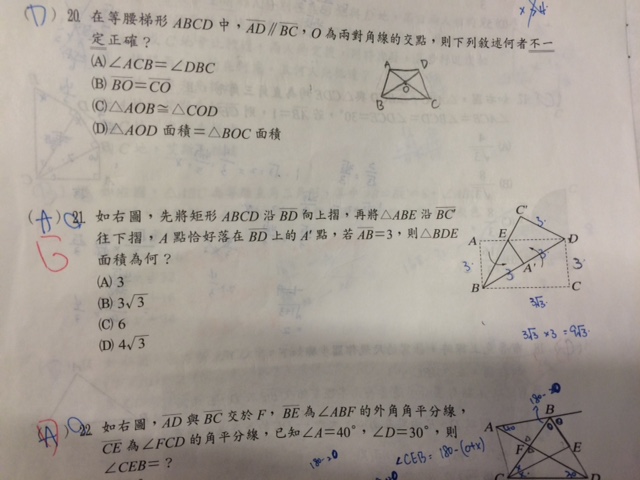 (D) 20. 在等腰梯形 ABCD 中，AD // BC，O 為兩對角線的交點，則下列敘述何者不一
定正確？
(A) ∠ACB＝∠DBC
(B) BO＝CO
(C) △AOB≅△COD
(D) △AOD 面積＝△BOC 面積
A D
O
B C
(A) 21. 如右圖，先將矩形 ABCD 沿 BD 向上摺，再將△ABE 沿 BC'
往下摺，A 點恰好落在 BD 上的 A' 點，若 AB＝3，則△BDE
面積為何？
(A) 3
(B) 3√3
(C) 6
(D) 4√3
C'
3
A E D
3 3 3 3
A'
B C
3√3
3√3 × 3 = 9√3
(A) 22. 如右圖，AD 與 BC 交於 F，BE 為∠ABF 的外角角平分線，
CE 為∠FCD 的角平分線，已知∠A＝40°，∠D＝30°，則
∠CEB＝？
∠CEB=180-(o+x)
B
A
F E
C D